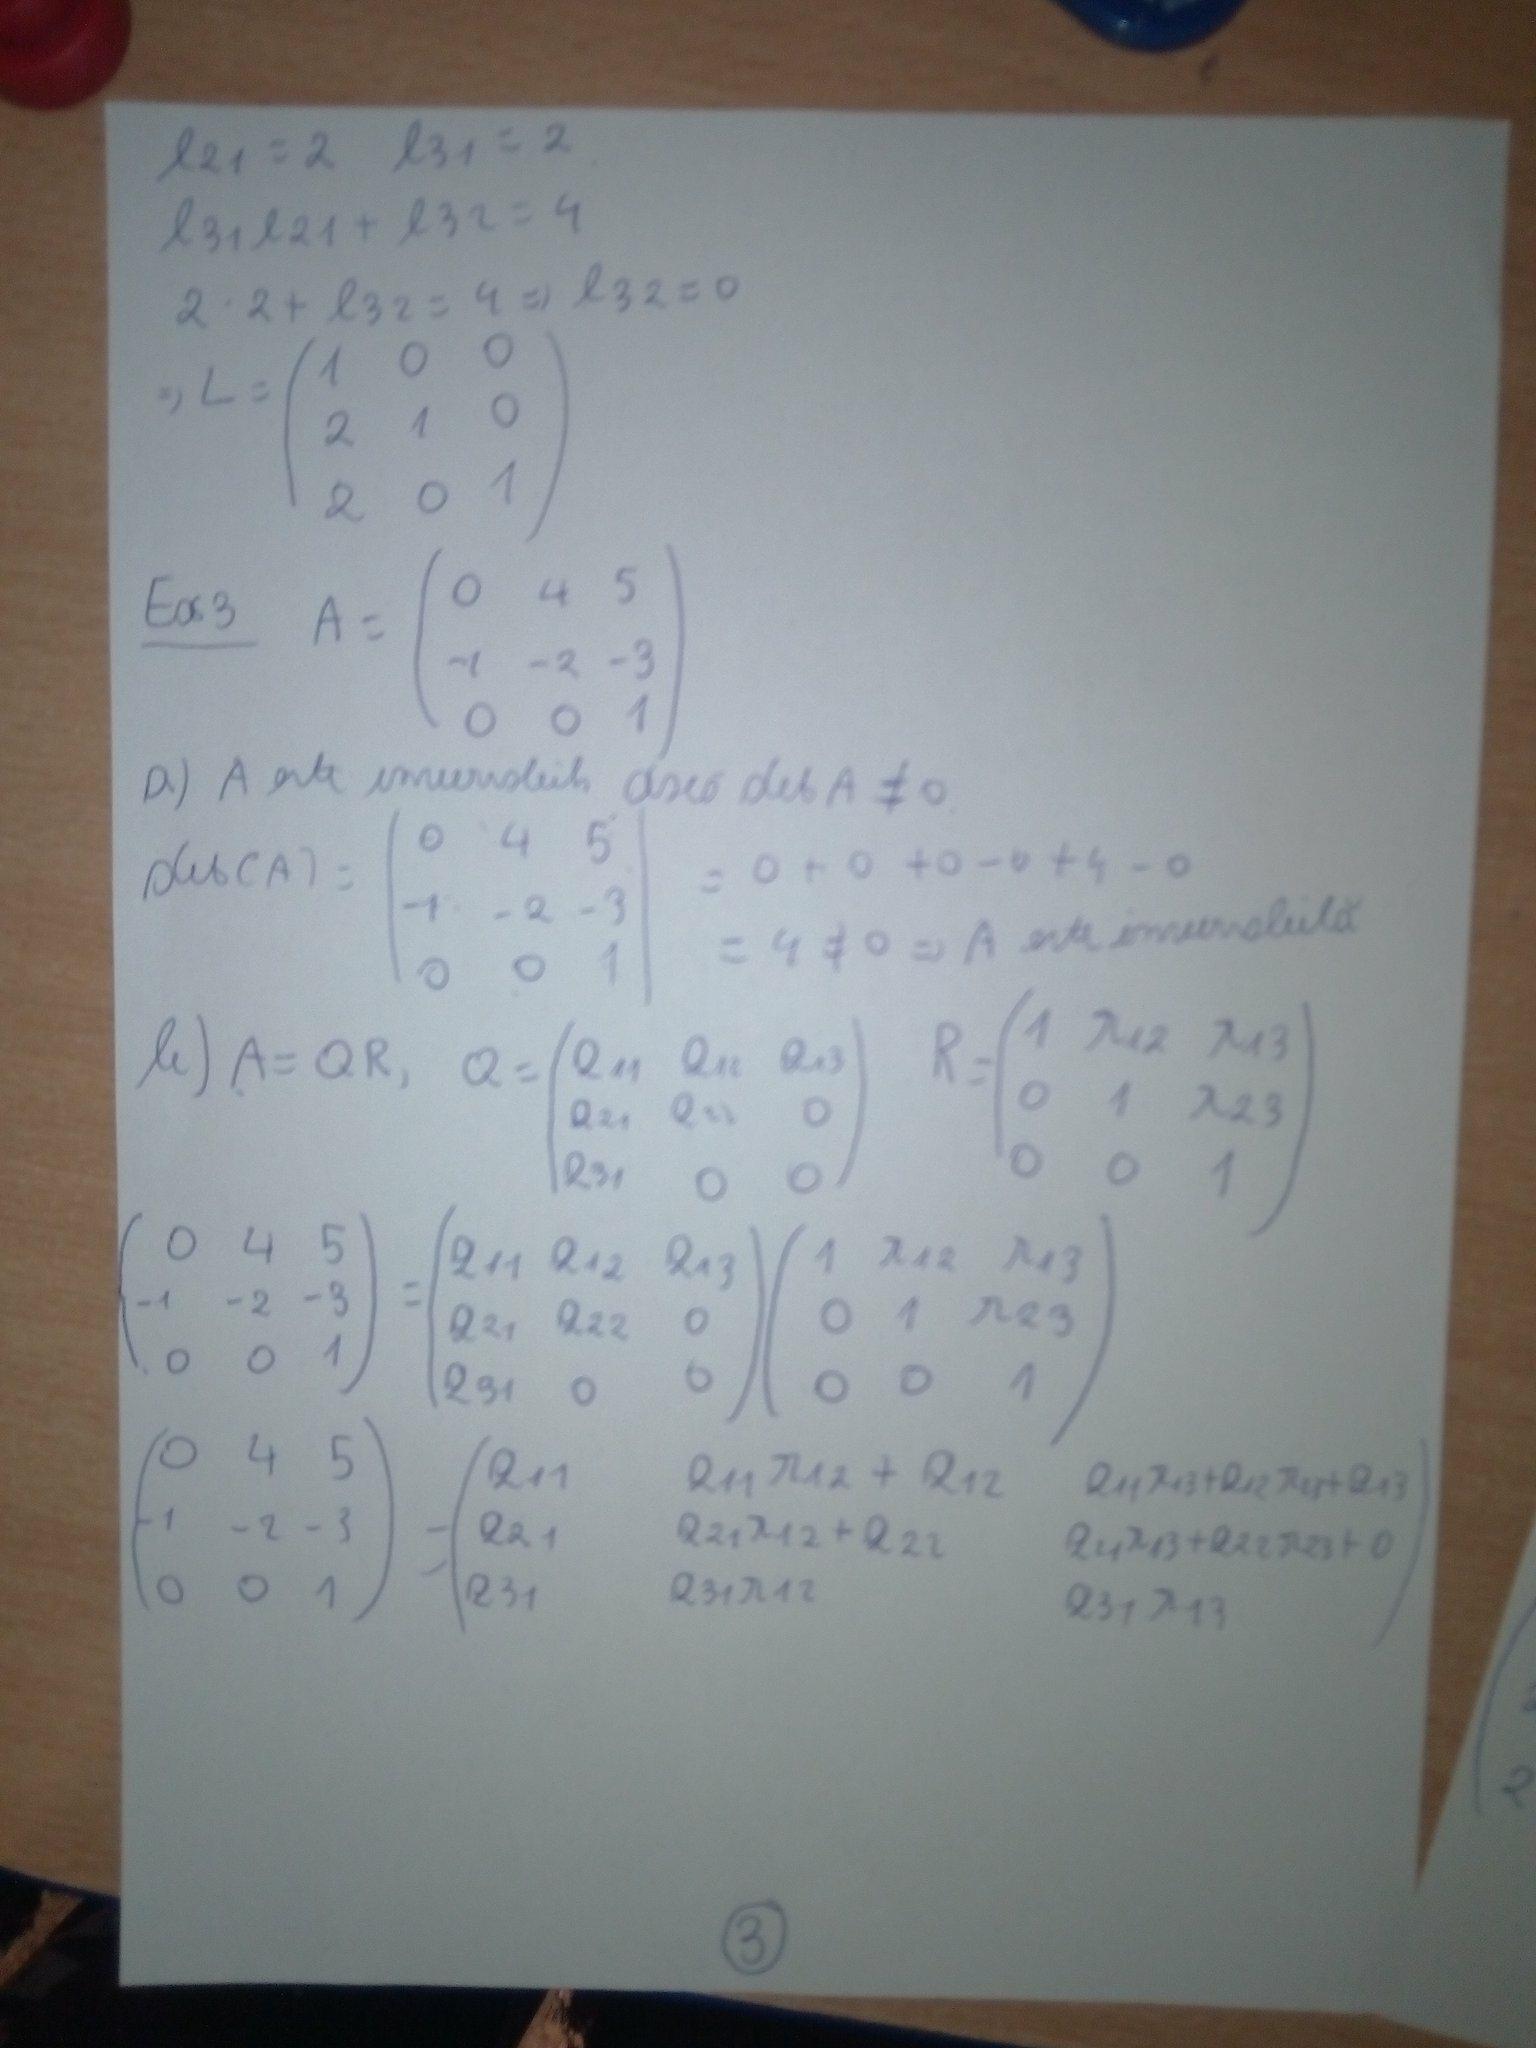 l21 = 2 l31 = 2
l31l21 + l32 = 4
2 · 2 + l32 = 4 => l32 = 0
=> L = (1 0 0
2 1 0
2 0 1)
Ex3 A = (0 4 5
-1 -2 -3
0 0 1)
a) A este inversabilă dacă det A ≠ 0
det(A) = |0 4 5
-1 -2 -3
0 0 1| = 0 + 0 + 0 - 0 + 4 - 0
= 4 ≠ 0 => A este inversabilă
b) A = QR, Q = (Q11 Q12 Q13
Q21 Q22 0
Q31 0 0) R = (1 r12 r13
0 1 r23
0 0 1)
(0 4 5
-1 -2 -3
0 0 1) = (Q11 Q12 Q13
Q21 Q22 0
Q31 0 0)(1 r12 r13
0 1 r23
0 0 1)
(0 4 5
-1 -2 -3
0 0 1) = (Q11 Q11r12 + Q12 Q11r13+Q12r23+Q13
Q21 Q21r12 + Q22 Q21r13+Q22r23+0
Q31 Q31r12 Q31r13)
3
2